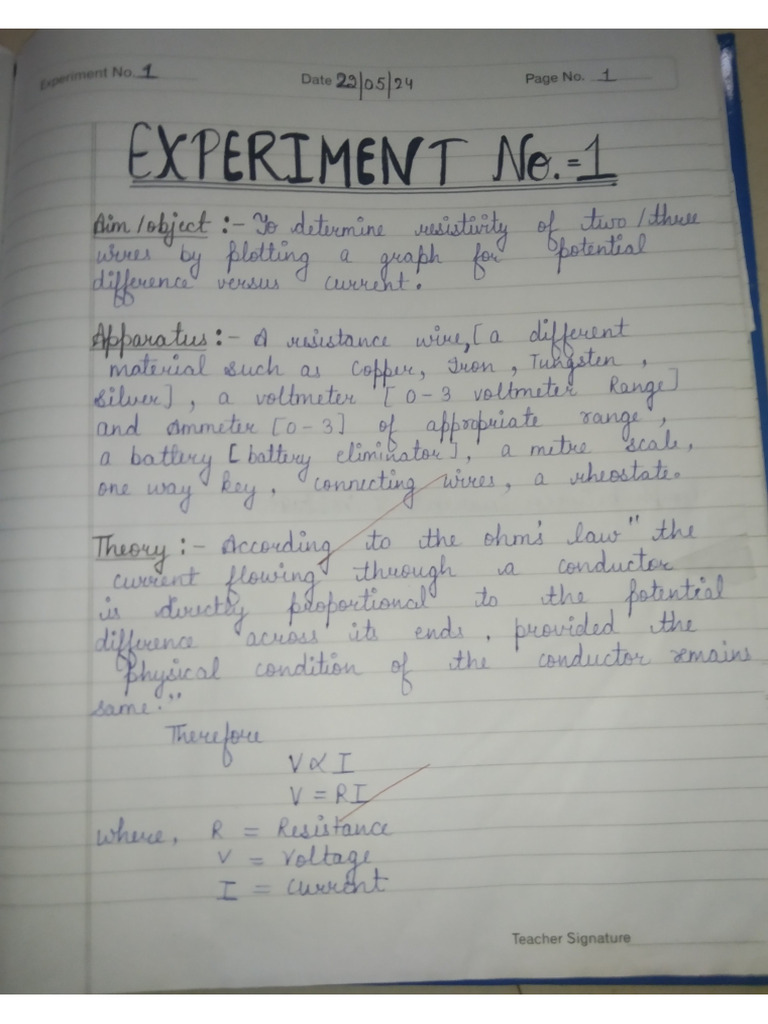 Experiment No. 1 Date 29/05/24 Page No. 1
EXPERIMENT No.=1
Aim/object :- To determine resistivity of two/three
wires by plotting a graph for potential
difference versus current.
Apparatus :- A resistance wire, [a different
material such as Copper, Iron, Tungsten,
Silver], a voltmeter [0-3 voltmeter Range]
and Ammeter [0-3] of appropriate range,
a battery [battery eliminator], a metre scale,
one way key, connecting wires, a rheostate.
Theory :- According to the ohm's law "the
current flowing through a conductor
is directly proportional to the potential
difference across its ends, provided the
physical condition of the conductor remains
same."
Therefore
V ∝ I
V = RI
where, R = Resistance
V = Voltage
I = current
Teacher Signature